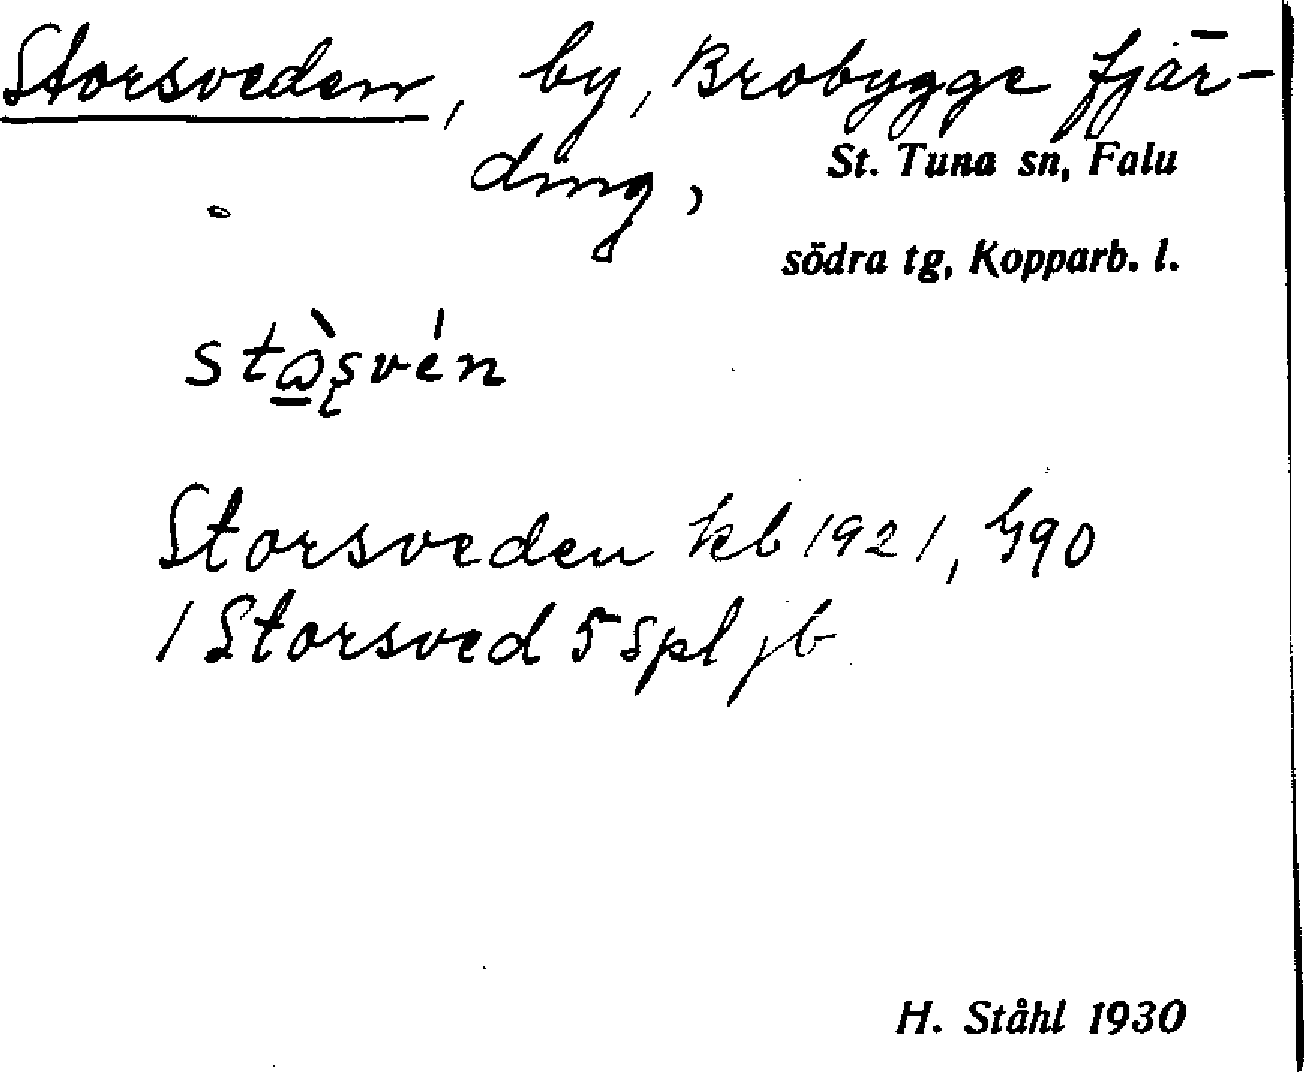 Storsveden, by, Brobygge fjär-
ding,
St. Tuna sn, Falu
södra tg, Kopparb. l.
Storsveden kb 1921, G90
1 Storsved 5 spl jb
H. Ståhl 1930